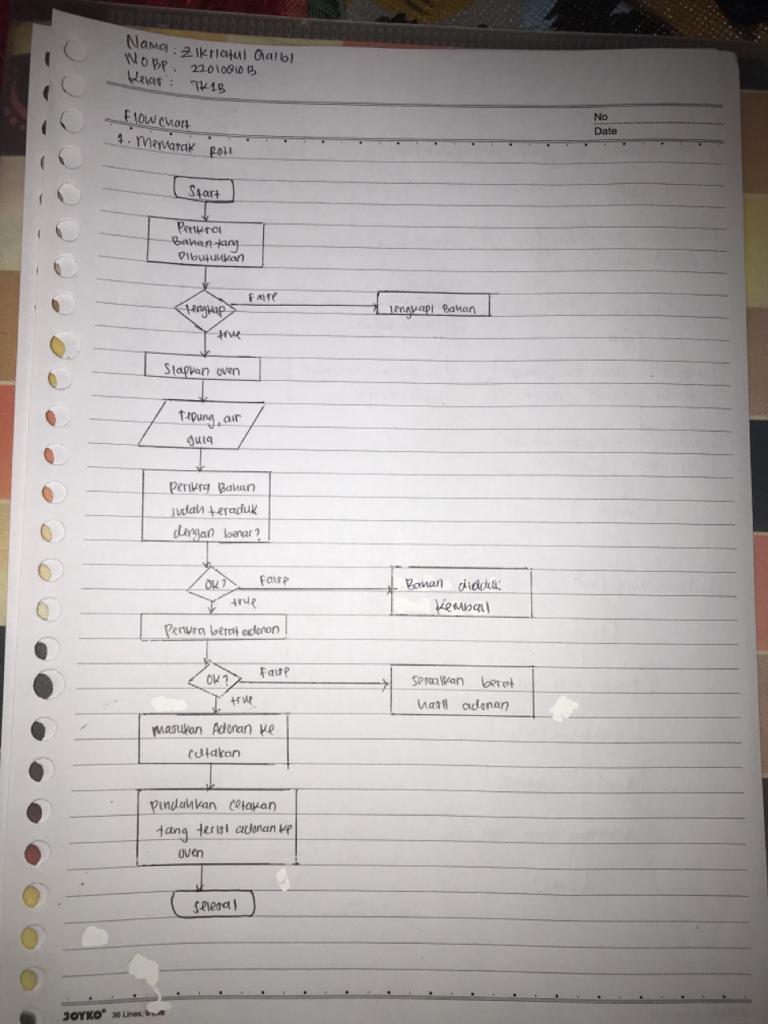 Nama : Zikriatul Qalbi
No Bp. 
Kelas : TK1B
No
Date
Flowchart
1. Memasak Roti
Start
Periksa
Bahan yang
Dibutuhkan
lengkap
False
lengkapi Bahan
true
Siapkan oven
tepung, air
gula
Periksa Bahan
sudah teraduk
dengan benar?
OK?
False
Bahan diaduk
kembali
true
Periksa berat adonan
OK?
False
sesuaikan berat
hasil adonan
true
Masukan Adonan ke
cetakan
Pindahkan cetakan
yang terisi adonan ke
oven
selesai
JOYKO
36 Lines,